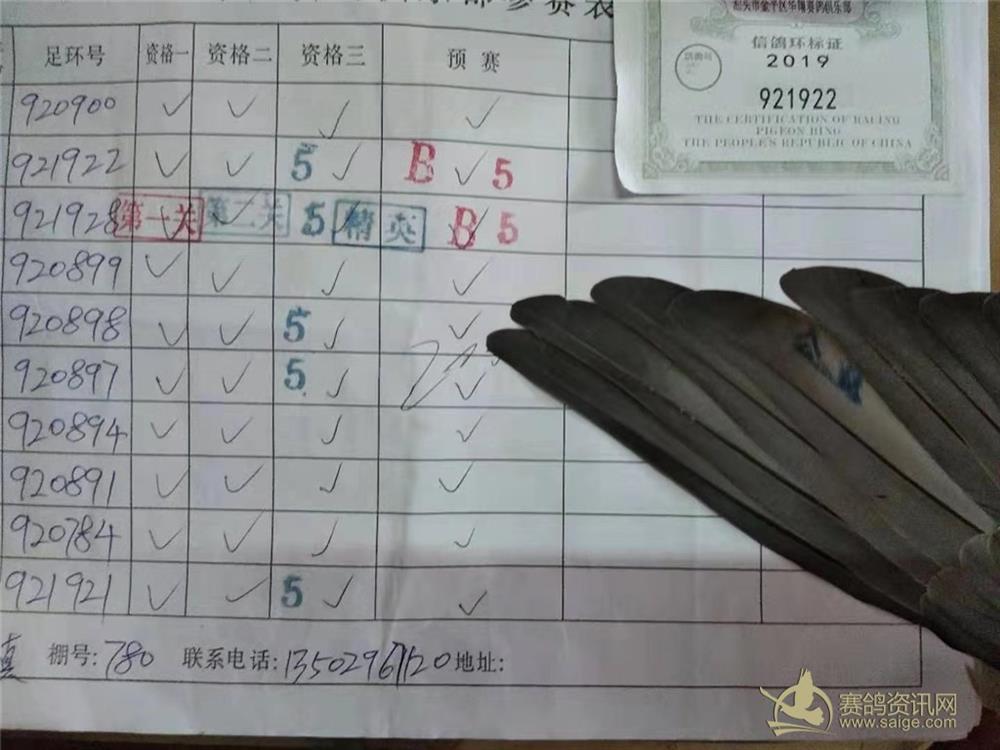 汕头市金平区华翔赛鸽俱乐部
信鸽环标证
2019
921922
THE CERTIFICATION OF RACING
PIGEON RING
THE PEOPLE'S REPUBLIC OF CHINA
参赛表
足环号 资格一 资格二 资格三 预赛
920900 ✓ ✓ ✓ ✓
921922 ✓ ✓ 5 ✓ B ✓ 5
921928 第一关 ✓ 第二关 ✓ 5 精英 B ✓ 5
920899 ✓ ✓ ✓ ✓
920898 ✓ ✓ 5 ✓ ✓
920897 ✓ ✓ 5 ✓ ✓
920894 ✓ ✓ ✓ ✓
920891 ✓ ✓ ✓ ✓
920784 ✓ ✓ ✓ ✓
921921 ✓ ✓ 5 ✓ ✓
真 棚号:780 联系电话:13502967120 地址:
赛鸽资讯网
www.saige.com